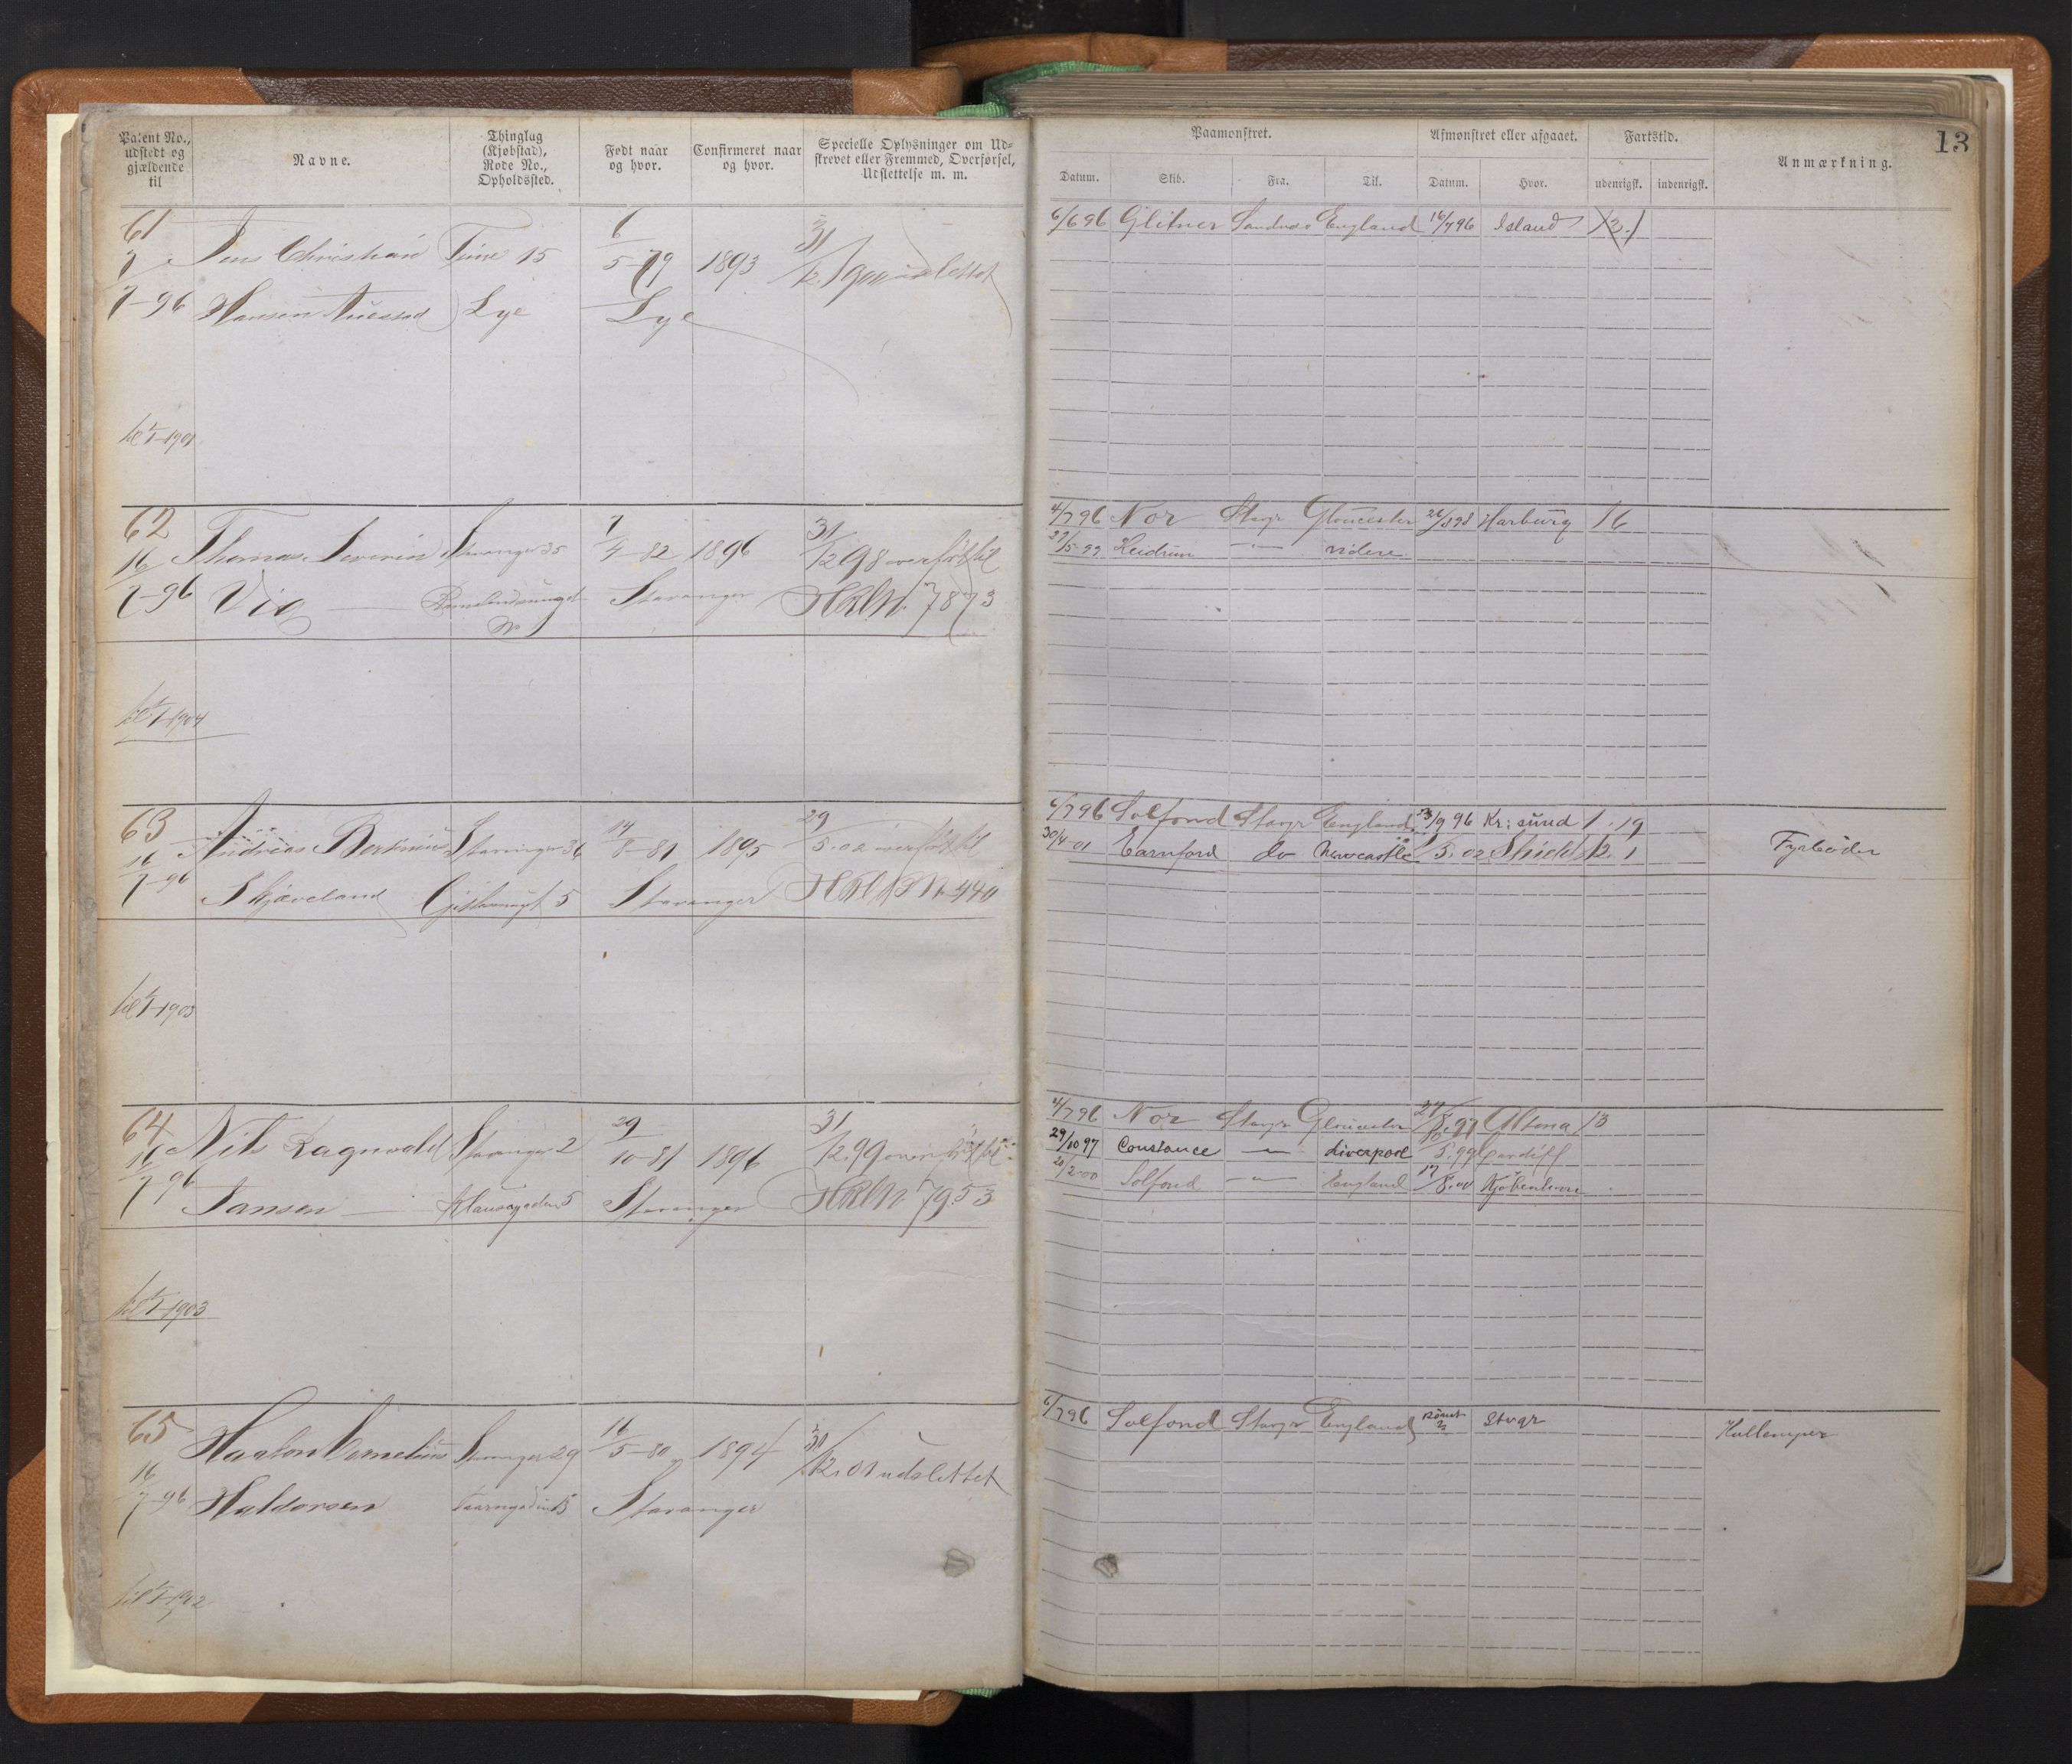 Patent No., udstedt og gjældende til
Navne.
Thinglag (Kjøbstad), Rode No., Opholdssted.
Født naar og hvor.
Confirmeret naar og hvor.
Specielle Oplysninger om Udskrevet eller Fremmed, Overførsel, Udslettelse m. m.
Paamønstret.
Afmønstret eller afgaaet.
Fartstid.
Anmærkning.
13
Datum.
Skib.
Fra.
Til.
Datum.
Hvor.
udenrigsk.
indenrigsk.
61
Jens Christian Time 15 6/5-79 1893 31/12 1900 udslettet
7/7-96 Hansen Lye Lye
til 1/1-1901
6/6 96 Glitner Sandnes England 16/7 96 Island
62
Thomas Severin Stavanger 35 7/4-82 1896 31/12 98 overført til
16/7-96 Vig Stavanger HRl N. 7873
til 1/1-1904
4/7 96 Nor Stvgr Gloucester 26/8 98 Harburg 16
27/5-99 Heidrun -"- videre
63
Andreas Berthinius Stavanger 36 14/8-81 1895 29/5.02 overført til
16/7-96 Skjæveland 5 Stavanger N. 440
til 1/1-1903
6/7 96 Solfond Stvgr England 23/9 96 Kr: sund 1.19
30/4-01 Earnford do Newcastle 5.02 Shields 12.1
Fyrbøder
64
Nils Ragnvald Stavanger 2 29/10-81 1896 31/12.99 overført til
16/7 96 Jansen 5 Stavanger HRl N 7953
til 1/1-1903
4/7 96 Nor Stvgr Gloucester 24/8.97 Altona 13
29/10 97 Constance -"- Liverpool 10/5.99 Cardiff
20/2-00 Solfond -"- England 17/8.00 Kjøbenhavn
65
Haakon Cornelius Stavanger 29 16/5-80 1894 31/12.01 udslettet
16/7-96 Haldorsen Taarngaden 13 Stavanger
til 1/1-1902
6/7 96 Solfond Stvgr England rømt Stvgr
Kullemper